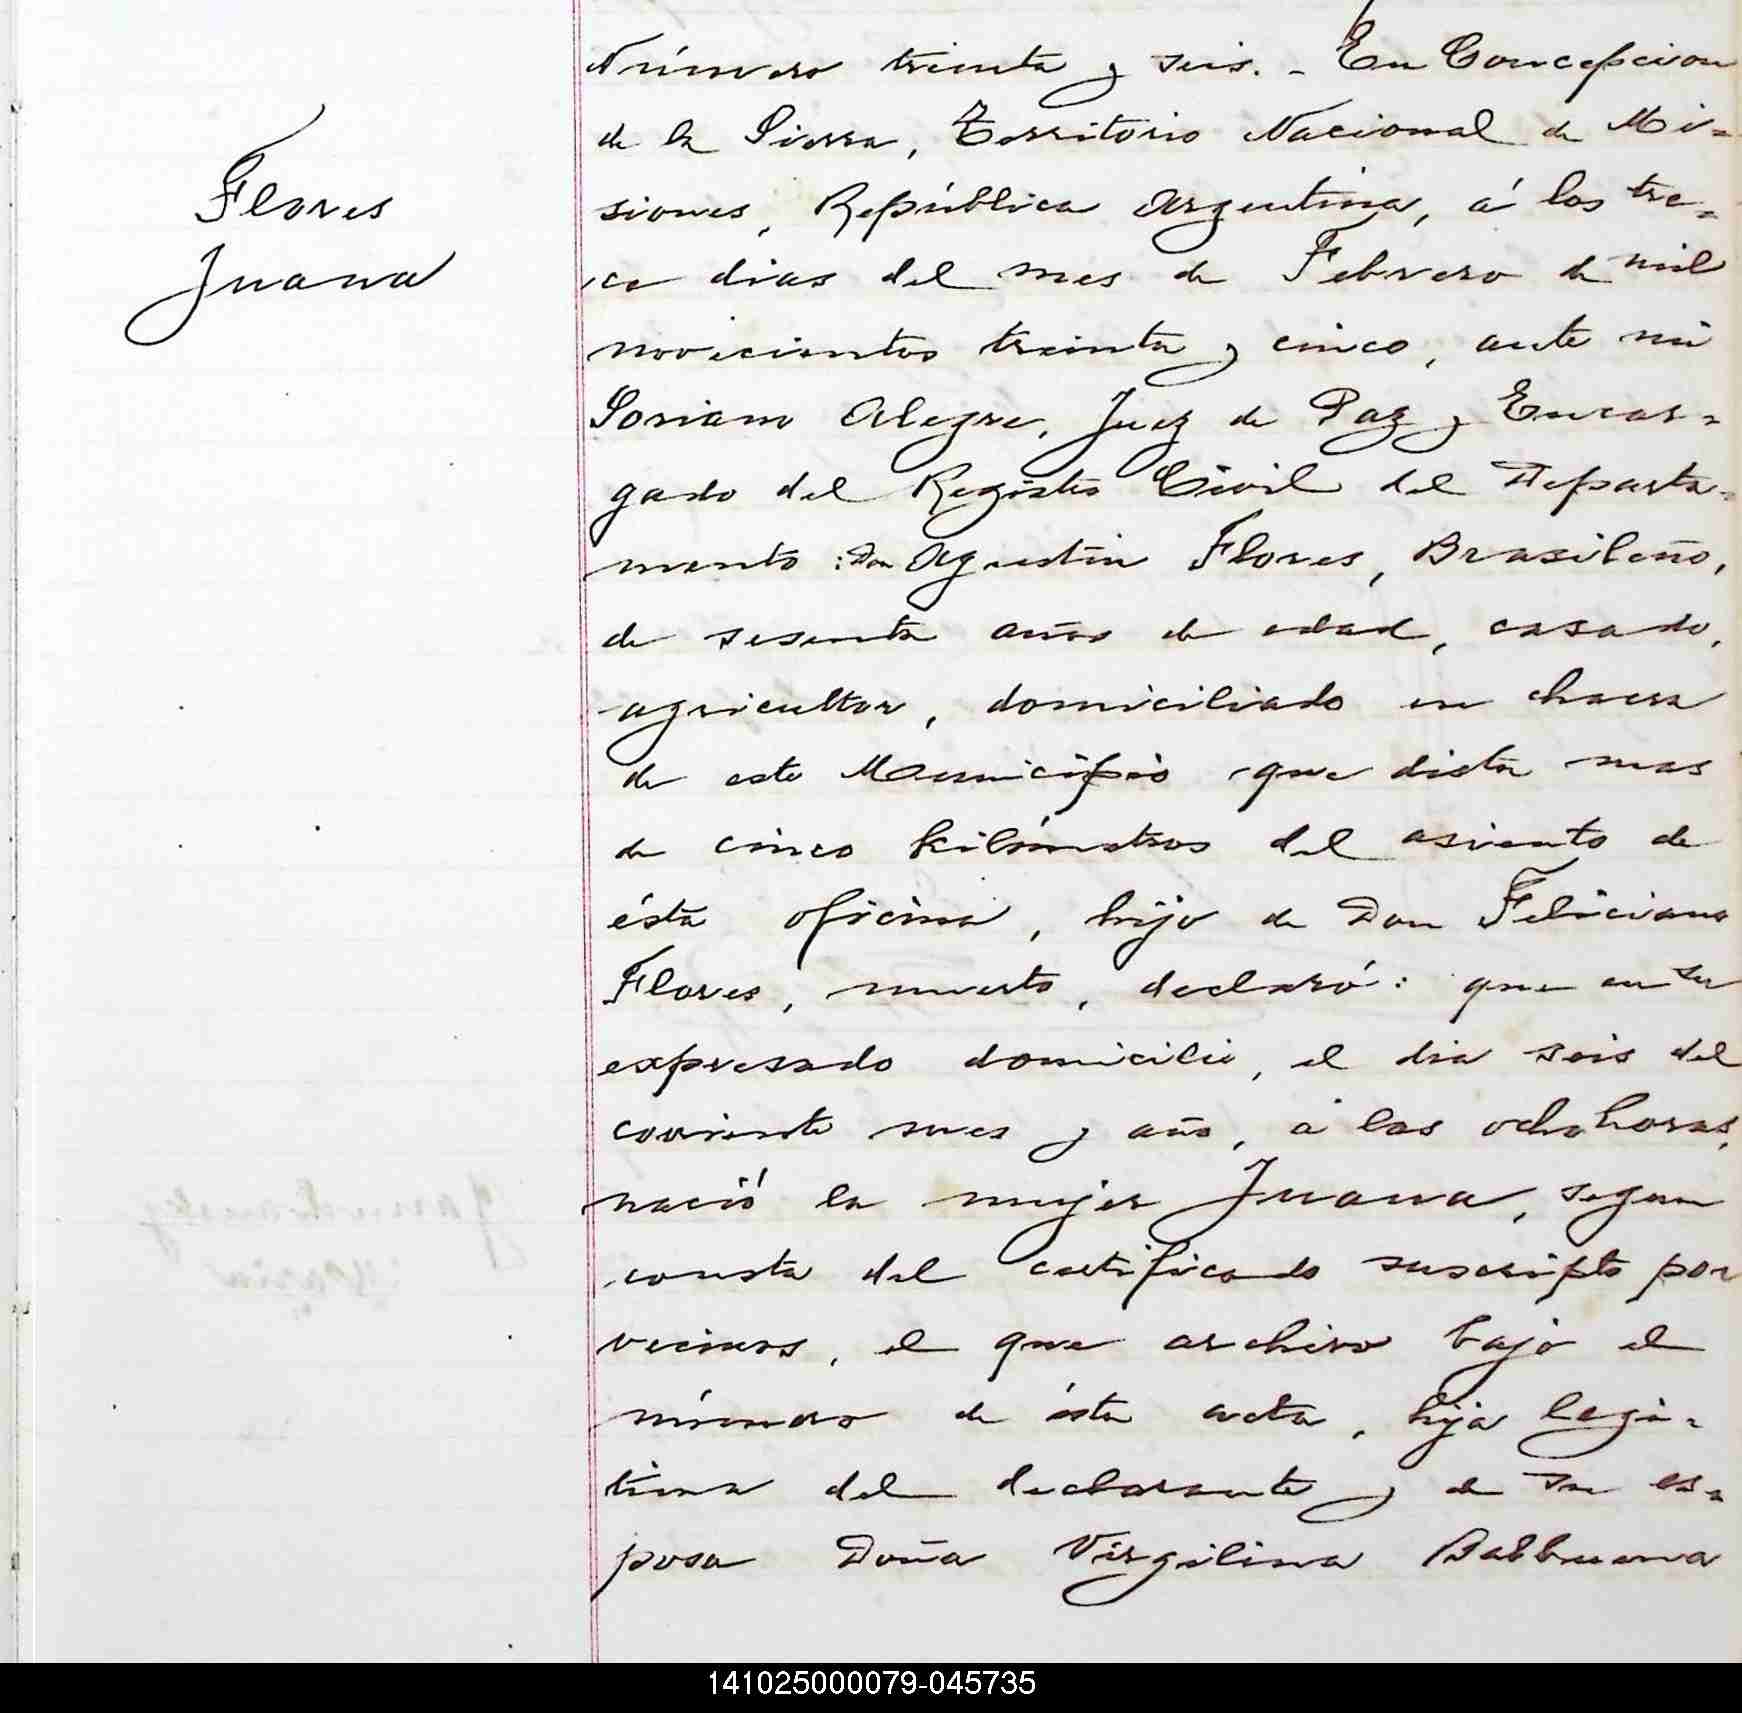 Flores
Juana
Número treinta y seis. - En Concepcion
de la Sierra, Territorio Nacional de Mi-
siones, República Argentina, á los tre-
ce dias del mes de Febrero de mil
novecientos treinta y cinco, ante mi
Soriano Alegre, Juez de Paz y Encar-
gado del Registro Civil del Departa-
mento: Don Agustin Flores, Brasileño,
de sesenta años de edad, casado,
agricultor, domiciliado en chacra
de este Municipio que dista mas
de cinco kilómetros del asiento de
ésta oficina, hijo de Don Feliciano
Flores, muerto, declaró: que en su
expresado domicilio, el dia seis del
corriente mes y año, á las ocho horas,
nació la mujer Juana, segun
consta del certificado suscripto por
vecinos, el que archivo bajo el
número de ésta acta, hija legi-
tima del declarante y de su es-
posa Doña Virgilina Balbuena
141025000079-045735